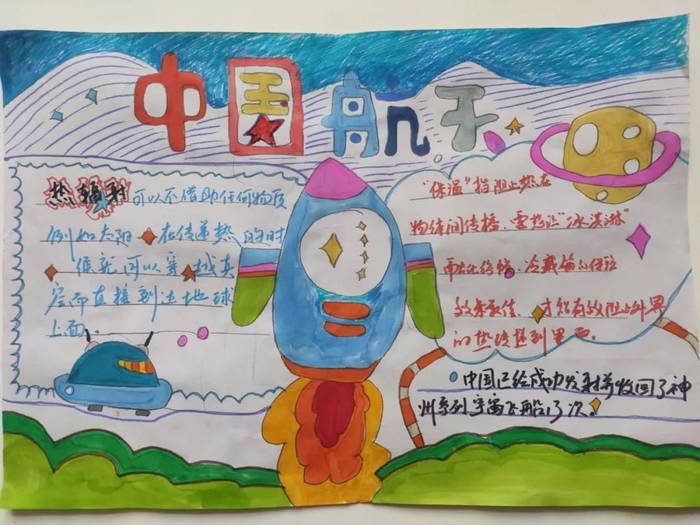 中国航天
热辐射可以不借助任何物质
例如太阳 在传递热的时
候就可以穿越真
空而直接到达地球
上面。
"保温"指阻止热在
物体间传播、要想让"冰淇淋"
冷藏箱的保温
效果最佳、才能有效阻止外界
的热传热到里面。
中国已给成功发射并收回了神
州系列宇宙飞船13次。